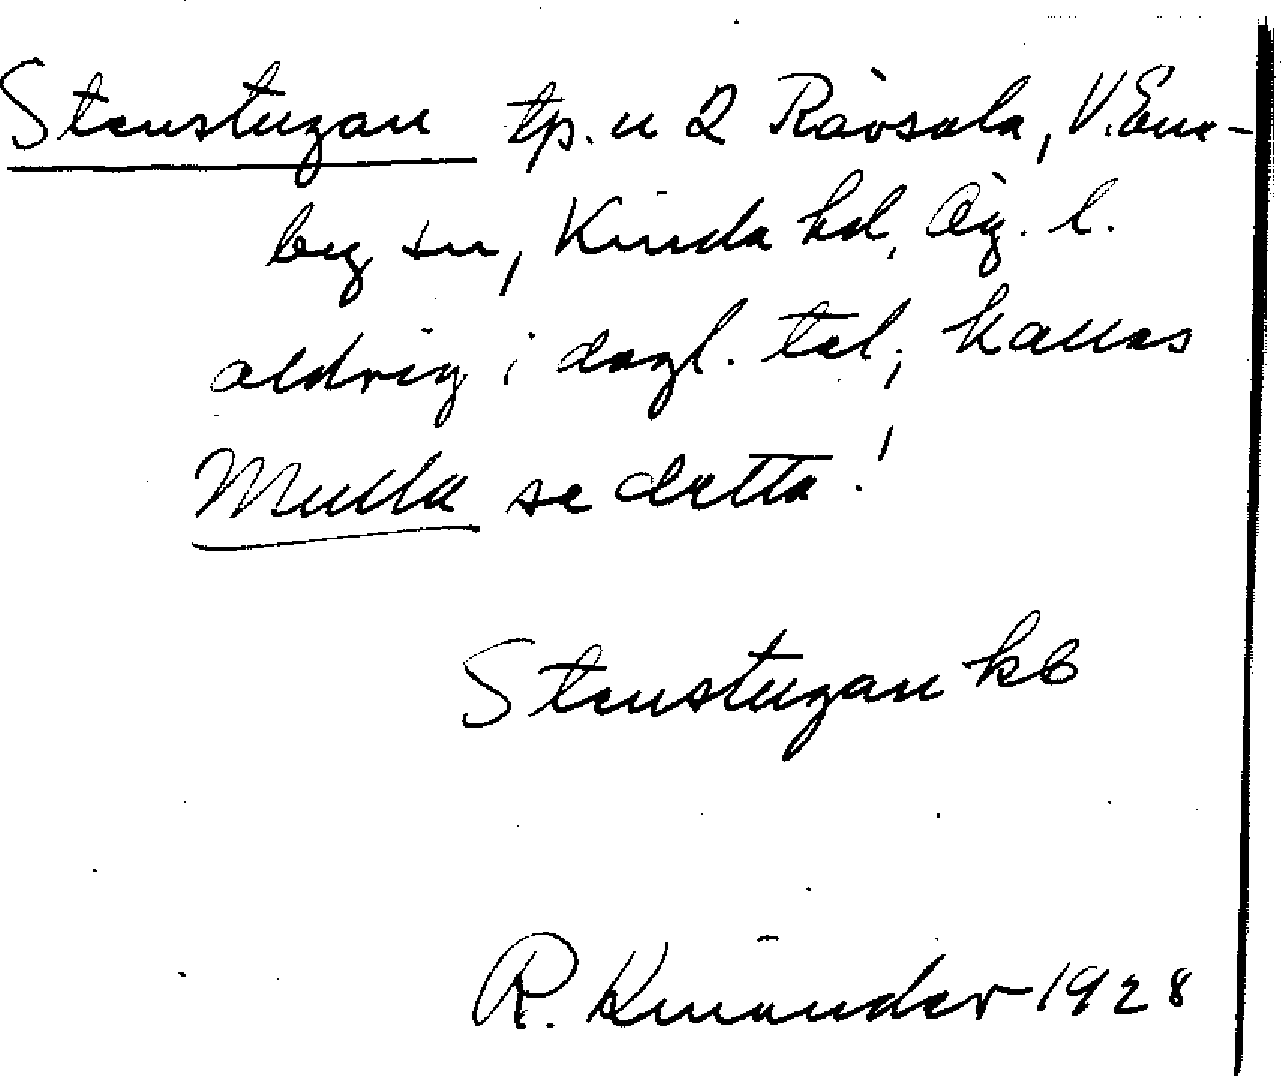 Stenstugan tp. u 2 Råvsala, V. Ene-
by sn, Kinda hd, Ög. l.
aldrig i dagl. tal, kallas
Mulla se detta!
Stenstugan kb
R. Kinander 1928